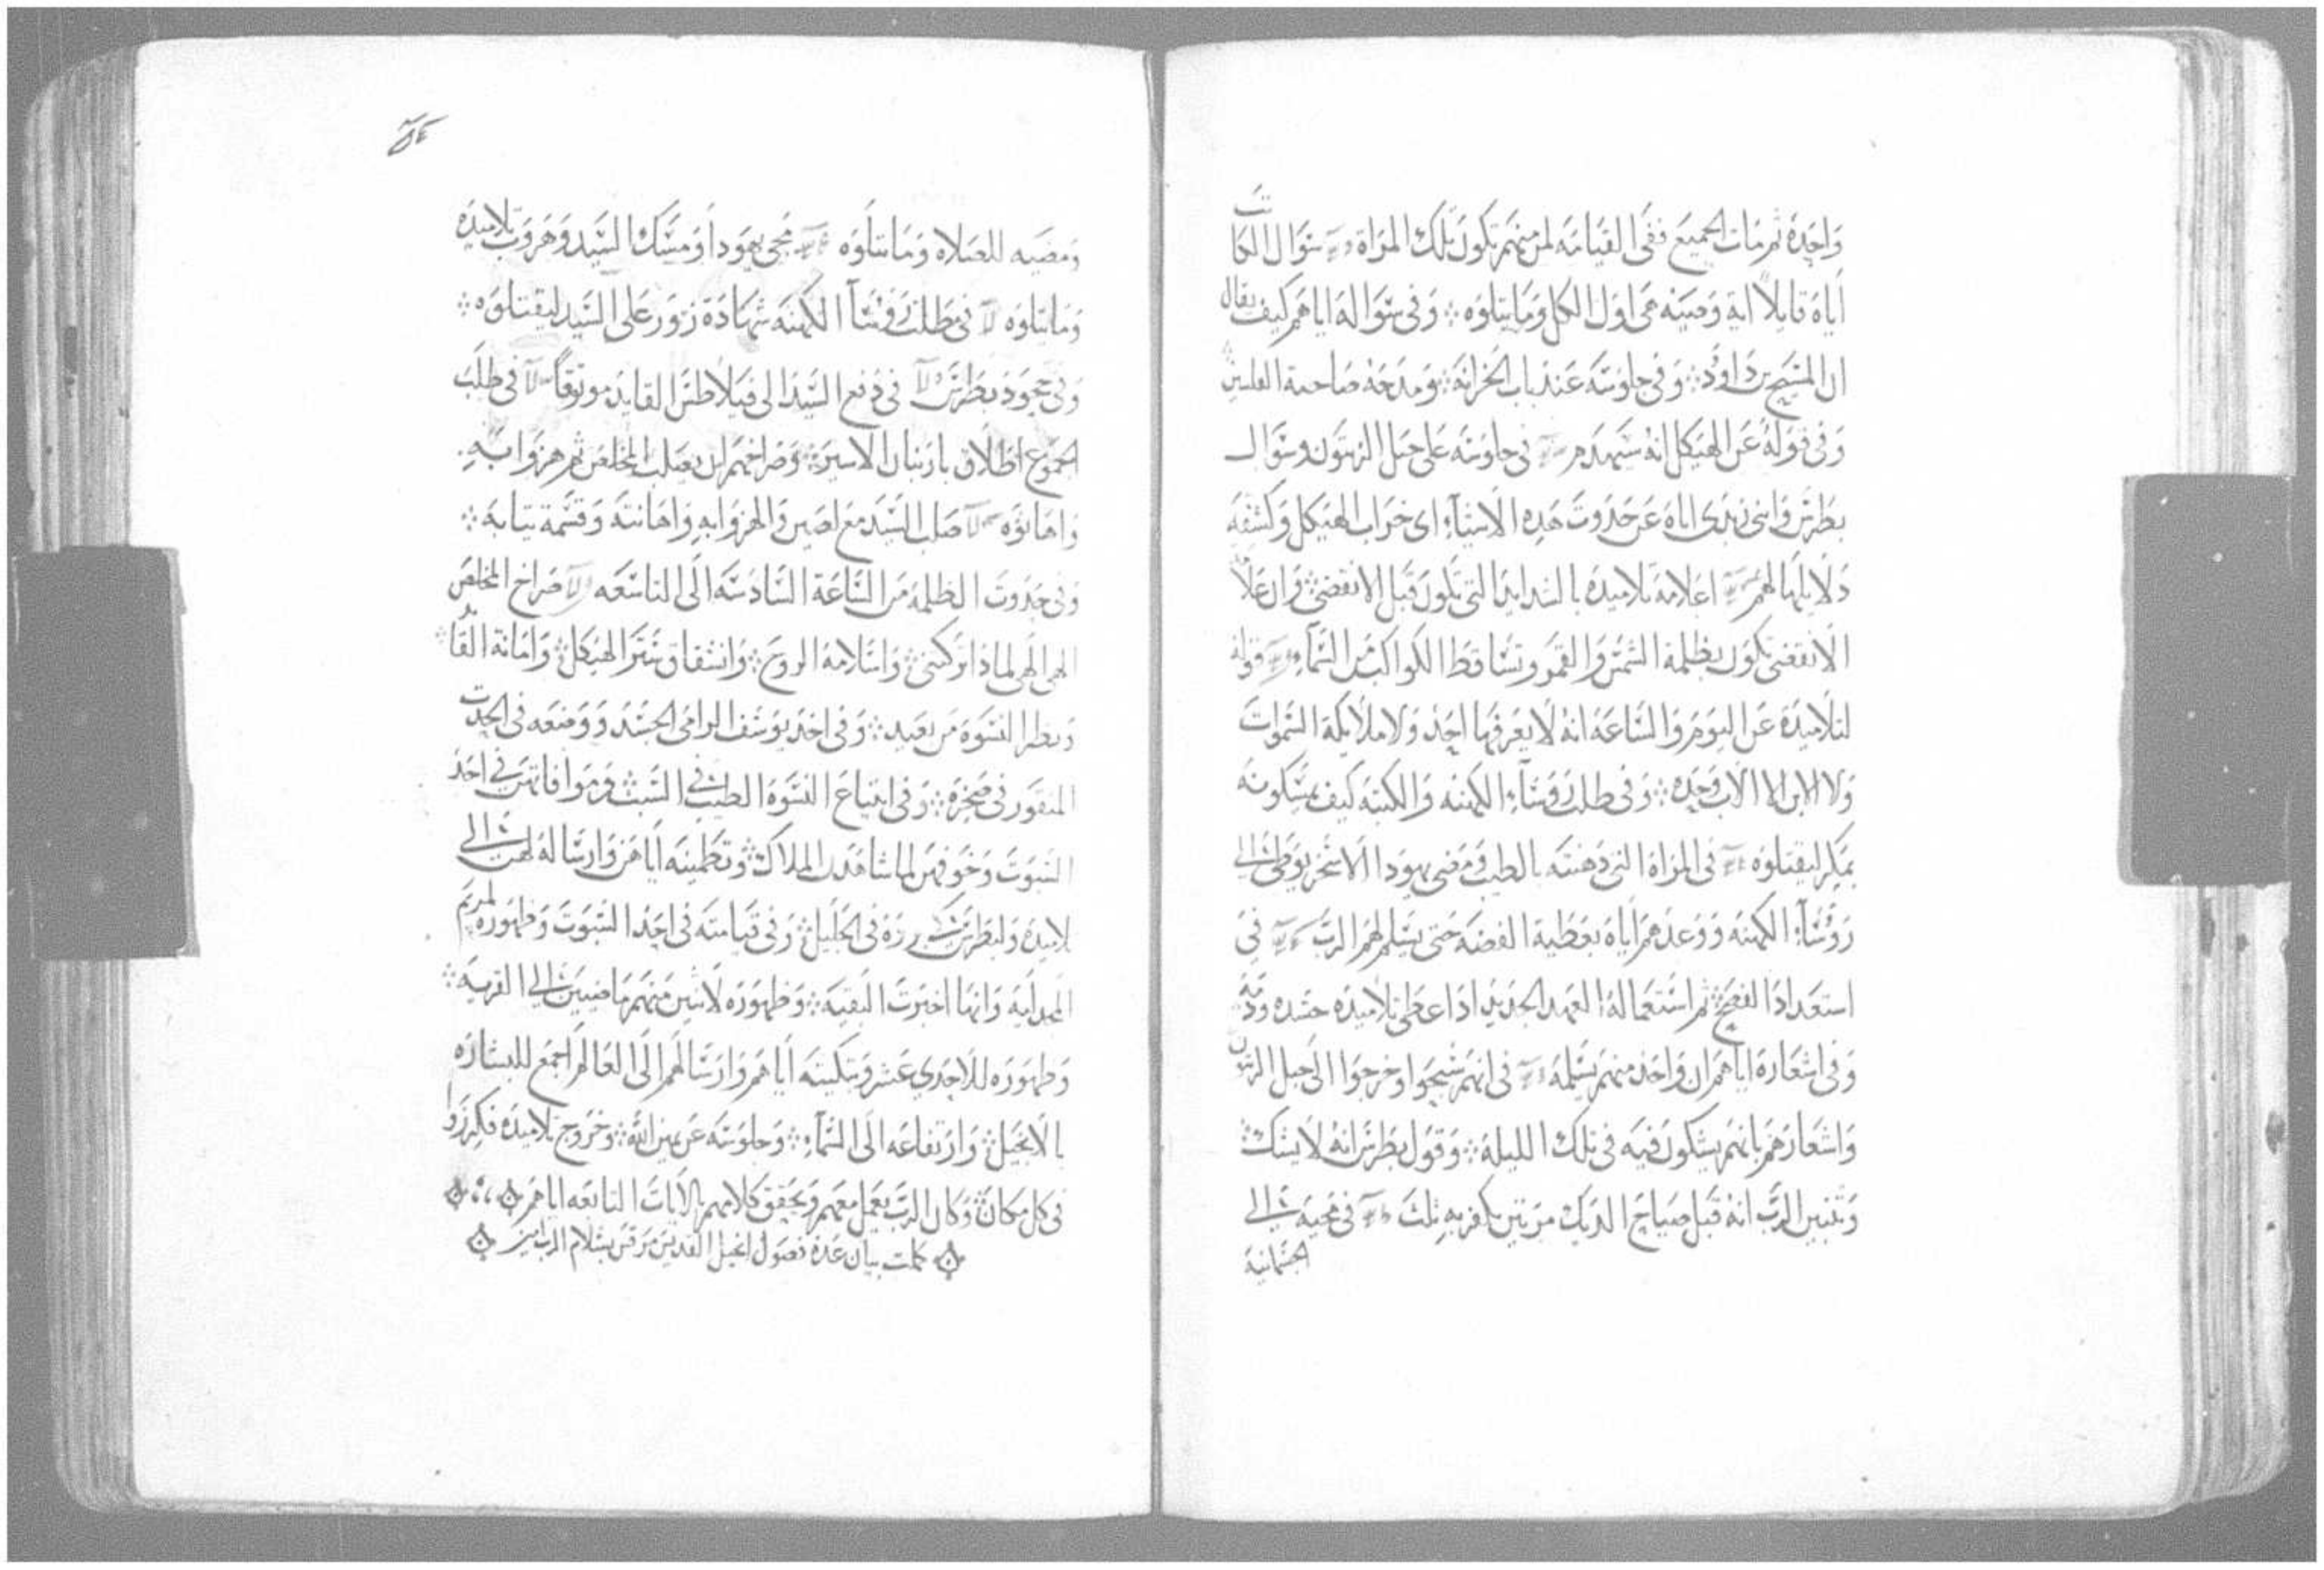 واحدة ثم مات الجميع ففي القيامة لمن منهم تكون تلك المراة سوال الكاتب
اياه قايلا اية وصيه هي اول الكل وما يتلوه وفي سواله اياهم كيف يقال
ان المسيح بن داود وفي جلوسه عند باب الخزانة ومدحه صاحبة الفلسين
وفي قوله عن الهيكل انه سيهدم في جلوسه على جبل الزيتون وسوال
بطرس وابني زبدى اياه عن حدوت هده الاشياء اى خراب الهيكل وكشفه
دلايلها لهم اعلامه تلاميده بالشدايد التي تكون قبل الانقضي وان
الانقضي تكون بظلمة الشمس والقمر وتساقط الكواكب من السماء قوله
لتلاميده عن اليوم والساعة انه لا يعرفها احد ولا ملايكة السموات
ولا الابن الا الاب وحده وفي طلب روساء الكهنه والكتبه كيف يمسكونه
بمكر ليقتلوه في المراة التي دهنته بالطيب ومضي يهودا الاسخريوطي الى
روساء الكهنه ووعدهم اياه بعطية الفضه حتى يسلم لهم الرب في
استعداد الفصح ثم استعماله العهد الجديد اد اعطى تلاميده جسده ودمه
وفي اشعاره اياهم ان واحد منهم يسلمه في انهم سبحوا وخرجوا الى جبل الزيتون
واشعارهم بانهم يشكون فيه في تلك الليلة وقول بطرس انه لا يشك
وتبيين الرب انه قبل صياح الديك مرتين يكفر به تلت في مجيه الى
الجسمانية
ومضيه للصلاه وما يتلوه مجى يهودا ومسك السيد وهروب تلاميده
وما يتلوه في طلب روسآ الكهنه شهادة زور على السيد ليقتلوه
وفي جحود بطرس في دفع السيد الى فيلاطس القايد موتوقا في طلب
الجموع اطلاق باربنان الاسير وصراخهم ان يصلب المخلص ثم هزوا به
واهانوه صلب السيد مع لصين والهزوا به واهانته وقسمة تيابه
وفي حدوت الظلمه من الساعة السادسه الى التاسعه صراخ المخلص
الهي الهي لماذا تركتني واسلامه الروح وانشقاق ستر الهيكل وامانة القايد
ونظر النسوة من بعيد وفي اخد يوسف الرامي الجسد ووضعه في الجدت
المنقور في صخرة وفي ابتياع النسوة الطيب في السبت وموافاتهن في احد
السبوت وخوفهن لما شاهدن الملاك وتطمينه اياهن وارساله لهن الى
تلاميده ولبطرس في الجليل وفي قيامته في احد السبوت وظهوره لمريم
المجدليه وانها اخبرت البقيه وظهوره لاتنين منهم ماضيين الى القريه
وظهوره للاحدي عشر وتبكيته اياهم وارسالهم الى العالم اجمع للبشاره
بالانجيل وارتفاعه الى السماء وجلوسه عن يمين الله وخروج تلاميده فكرزوا
في كل مكان وكان الرب يعمل معهم ويحقق كلامهم بالايات التابعه اياهم
كملت بيان عدة فصول انجيل القديس مرقس بسلام الرب امين